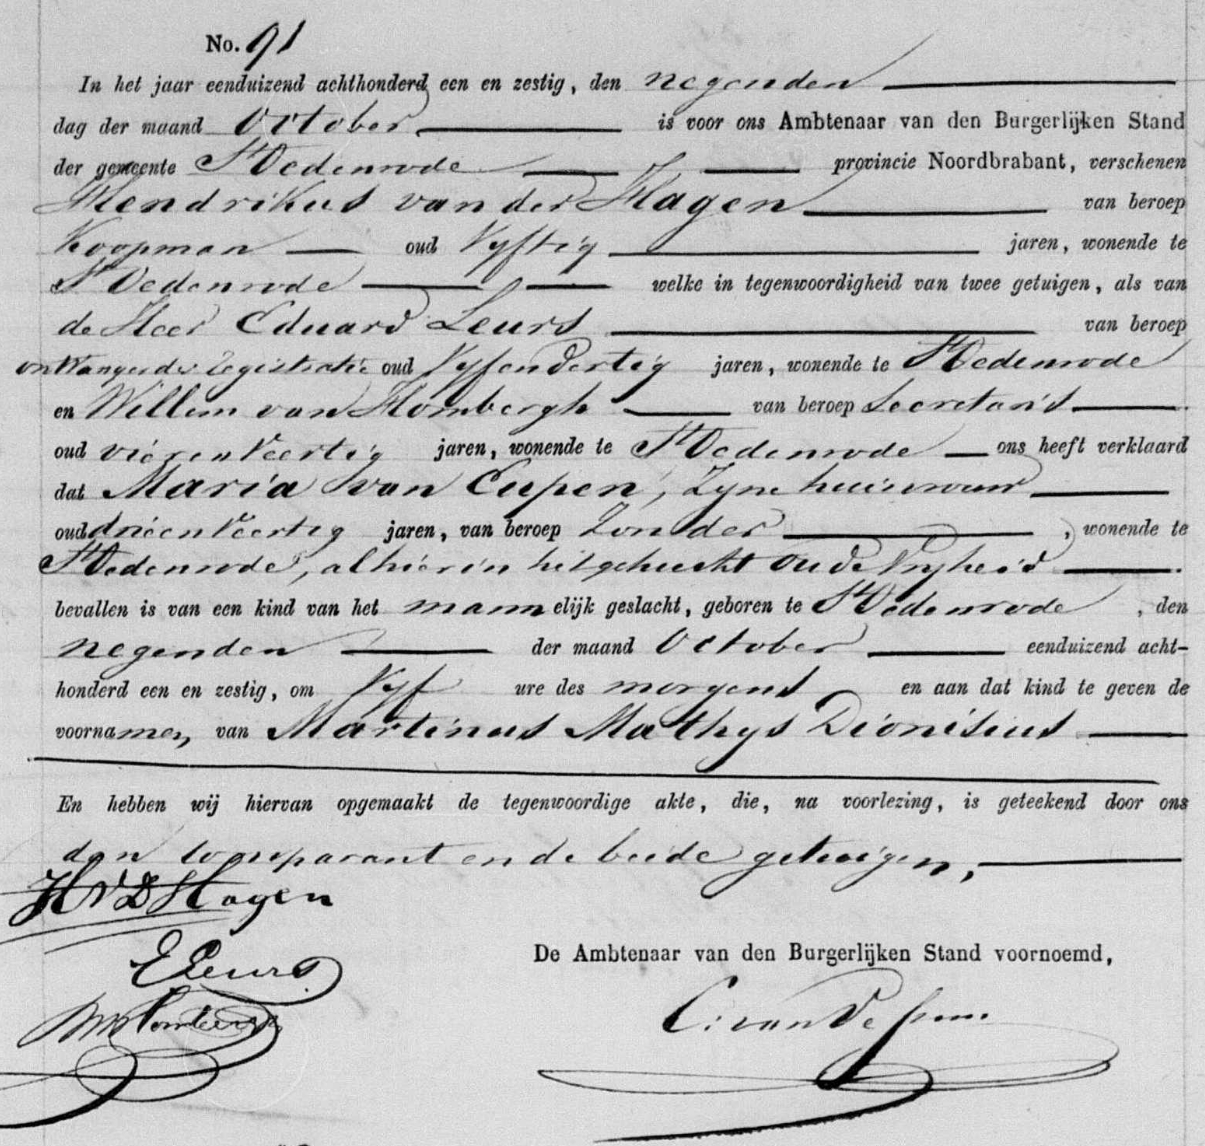 No. 91
In het jaar eenduizend achthonderd een en zestig, den negenden
dag der maand October is voor ons Ambtenaar van den Burgerlijken Stand
der gemeente St Oedenrode provincie Noordbrabant, verschenen
Hendrikus van der Hagen van beroep
Koopman oud Vyftig jaren, wonende te
St Oedenrode welke in tegenwoordigheid van twee getuigen, als van
de Heer Eduard Leurs van beroep
ontvanger der registratie oud Vyfendertig jaren, wonende te St Oedenrode
en Willem van Hombergh van beroep Secretaris
oud vierenveertig jaren, wonende te St Oedenrode ons heeft verklaard
dat Maria van Eupen, Zyne huisvrouw
oud drieenveertig jaren, van beroep Zonder, wonende te
St Oedenrode, alhier in het gehucht oude Vryheid
bevallen is van een kind van het mannelijk geslacht, geboren te St Oedenrode, den
negenden der maand October eenduizend acht-
honderd een en zestig, om Vyf ure des morgens en aan dat kind te geven de
voornamen, van Martinus Mathys Dionisius
En hebben wij hiervan opgemaakt de tegenwoordige akte, die, na voorlezing, is geteekend door ons
den comparant en de beide getuigen,
H V D Hagen
E Leurs
De Ambtenaar van den Burgerlijken Stand voornoemd,
C. van